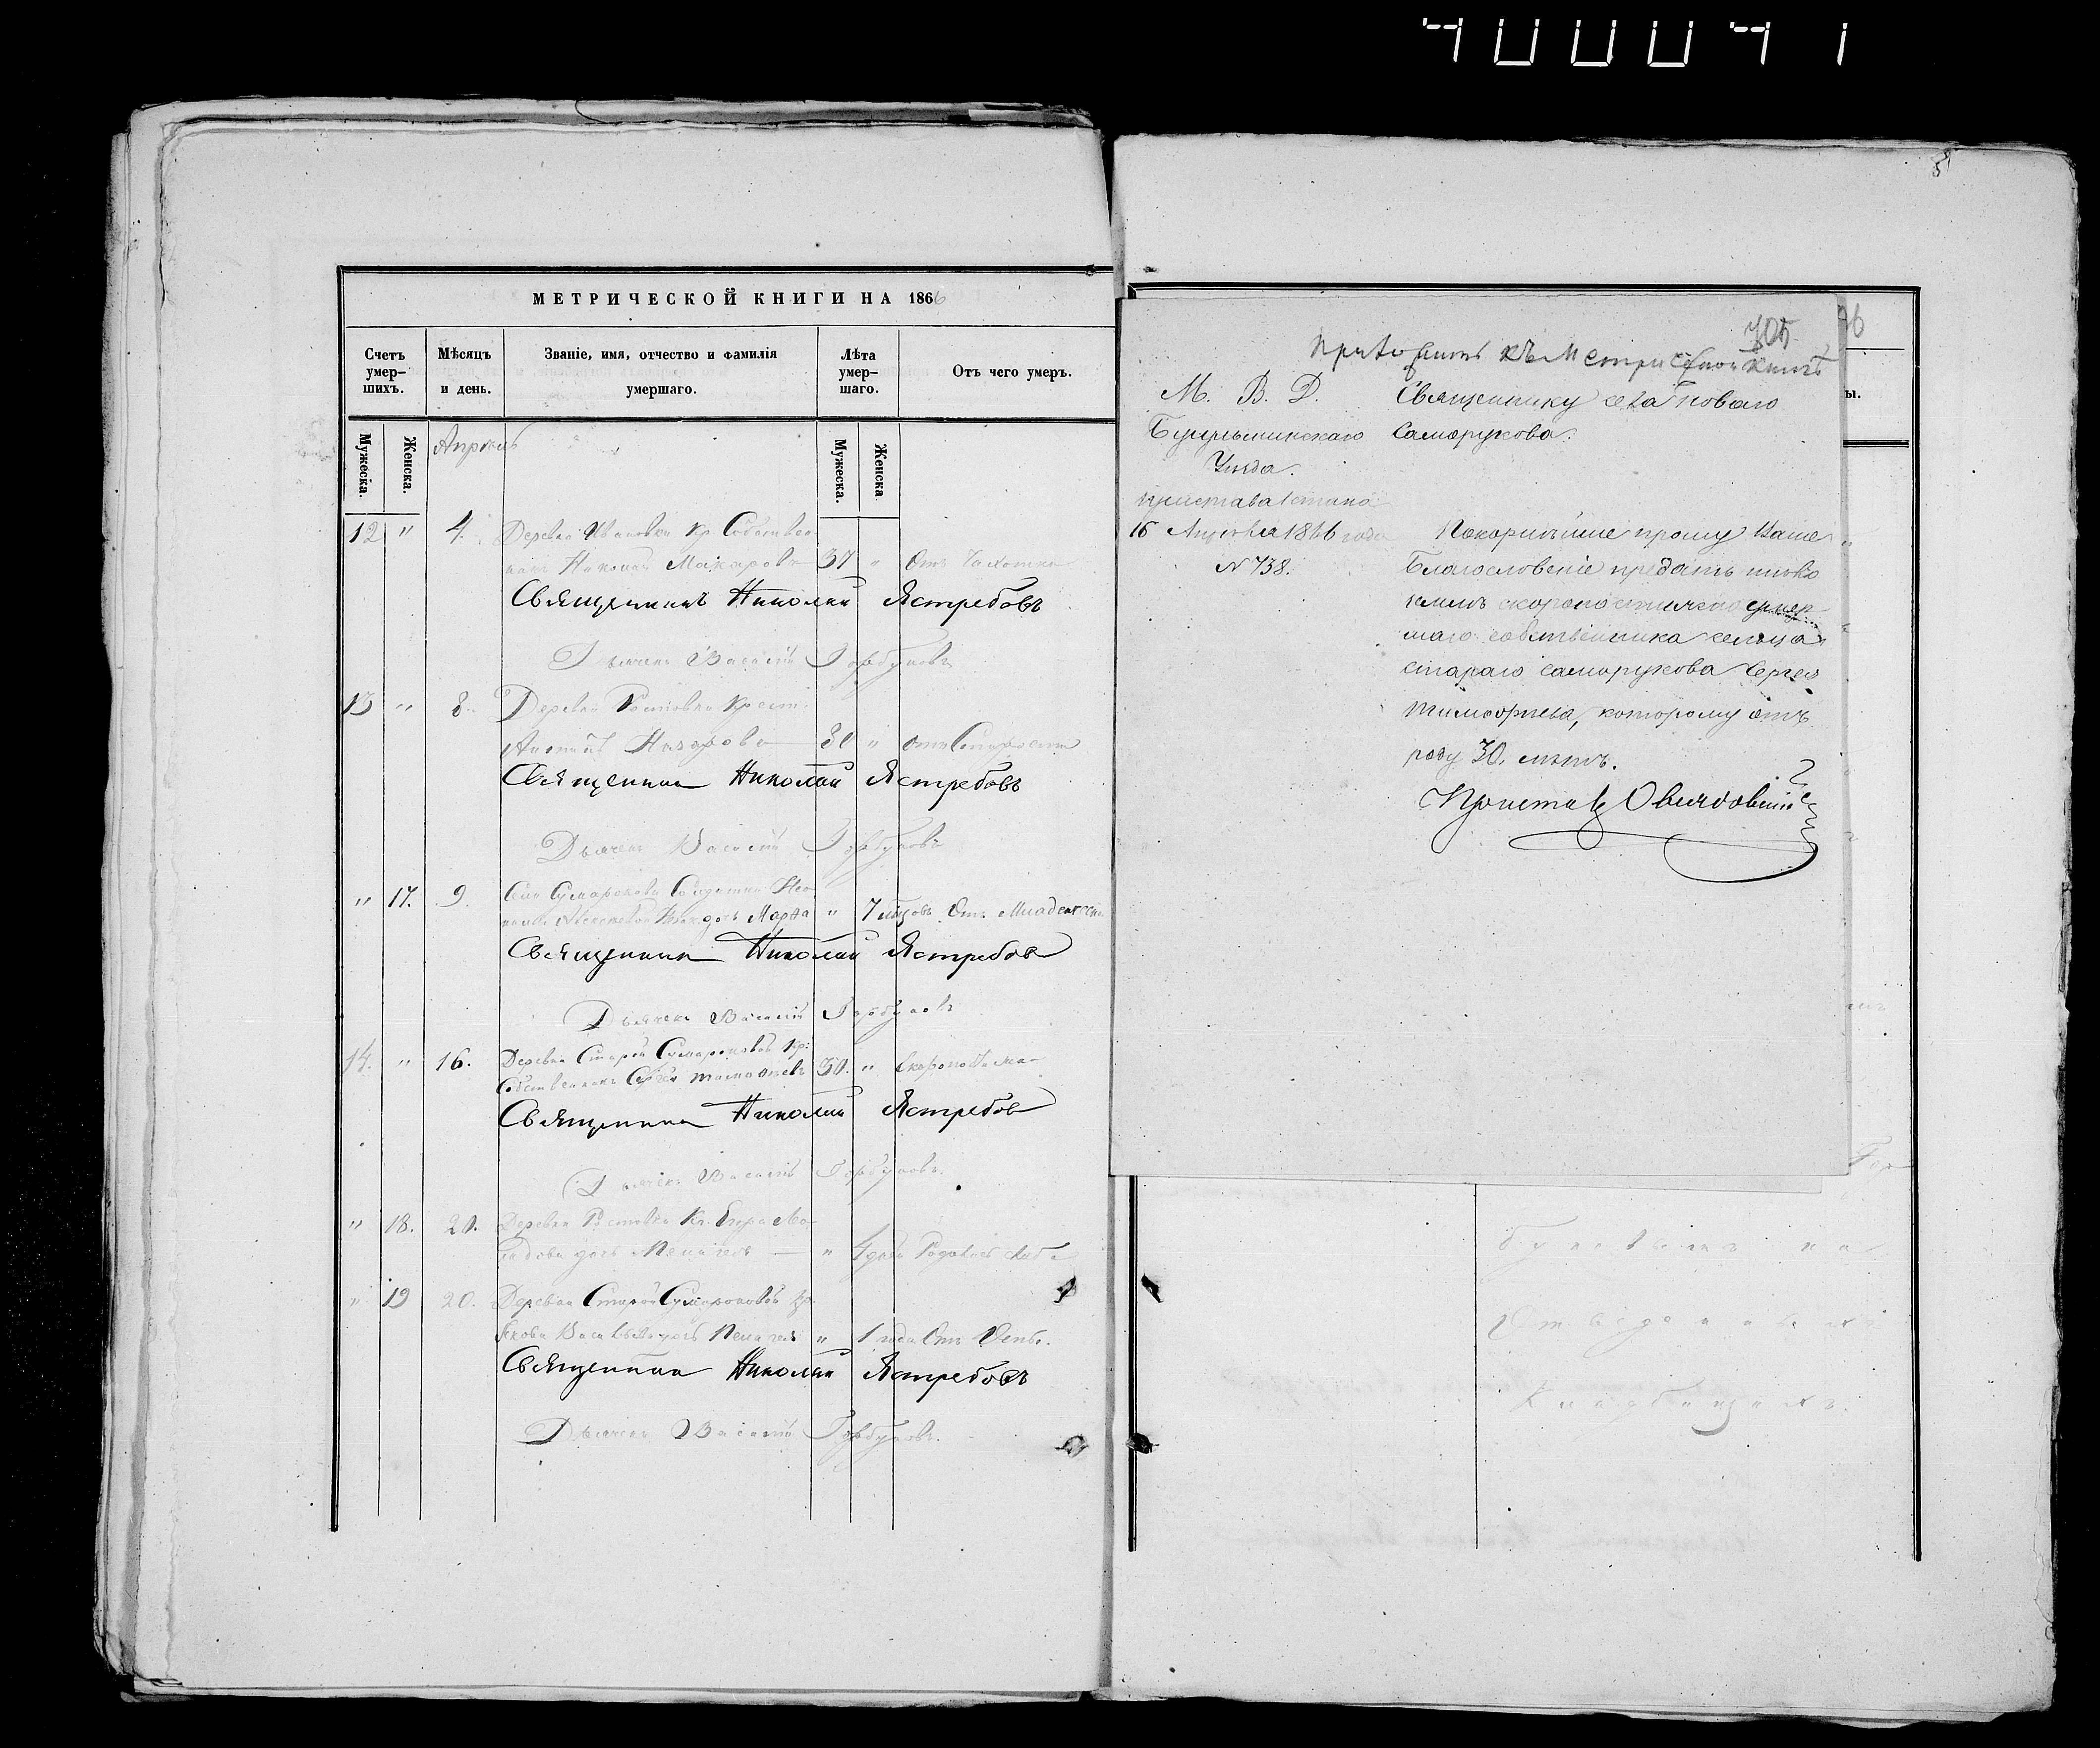 МЕТРИЧЕСКОЙ КНИГИ НА 1866
Счетъ умер-шихъ.
Мѣсяцъ и день.
Званіе, имя, отчество и фамилія умершаго.
Лѣта умер-шаго.
Отъ чего умеръ.
Мужеска.
Женска.
Апрѣль
Мужеска.
Женска
12 " 4. Деревни Ивановки кр. Собствен
никъ Николай Макаровъ 37 " Отъ Чахотки
Священникъ Николай Ястребовъ
Дьячекъ Василій Горбуновъ
13 " 8. Деревни Крест.
Назаровъ " отъ Старости
Священникъ Николай Ястребовъ
Дьячекъ Василій Горбуновъ
" 17. 9. Солдатки
дочь Марѳа " 7 мѣсяцовъ Отъ Младенчес
Священникъ Николай Ястребовъ
Дьячекъ Василій Горбуновъ
14. " 16. Деревни Старой Сумароковой Кр:
Собственникъ Сергѣй Тимоѳеевъ 30. " Скоропостижно
Священникъ Николай Ястребовъ
Дьячекъ Василій Горбуновъ
" 18. 20. Деревни Кр. Егора
дочь Пелагея " 4 дней Родилась слаба
" 19 20. Деревни Старой Сумароковой кр
Якова Васильева дочь Пелагея " 1 года Отъ Оспы.
Священникъ Николай Ястребовъ
Дьячекъ Василій Горбуновъ.
305
къ Метрической книгѣ
М. В. Д.
Бугульминскаго
Уѣзда.
Пристава 1 стана
16 Апрѣля 1866 года
N 738.
Священнику села Новаго
Саморукова.
Покорнѣйше прошу Ваше
Благословеніе предать
землѣ скоропостижно умер-
шаго собственника сельца
стараго саморукова Сергея
Тимоѳеева, которому отъ
роду 30 лѣтъ.
Приставъ
ы.
Кладбищѣ.